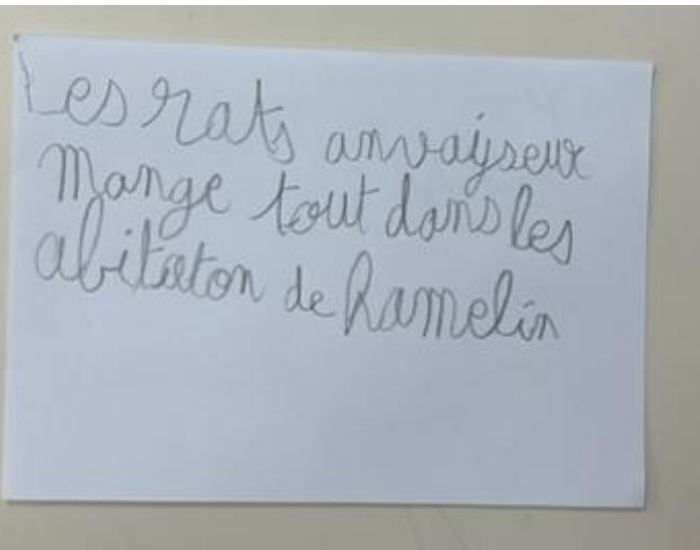 Les rats anvayseux
mange tout dans les
abitaton de hamelin